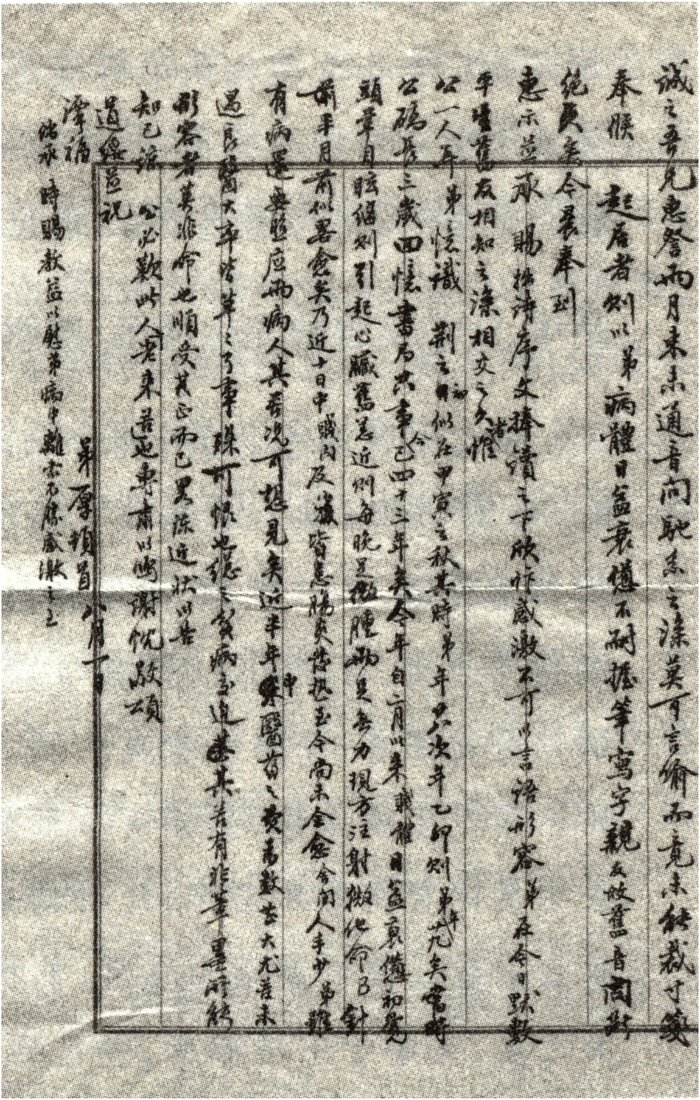 誠之吾兄惠詧兩月来未通音問馳系之深莫可言喻而竟未能裁寸箋
奉候　起居者則以弟病體日益衰憊不耐握筆寫字親友故舊音問
絕矣今晨奉到
惠示並承　賜拙詩序文捧讀之下欣忭感激不可以言語形容弟在今日默數
平生舊友相知之深相交之久惟
公一人耳弟憶識　荊之初似在甲寅之秋其時弟年　次年乙卯則弟年　矣當時
公碼長三歲回憶書局共事已四十三年矣今年自二月以来賤體日益衰憊初覺
頭暈目眩繼則引起心臟舊恙近則每晚足微腫兩足無力現方注射維他命B針
前半月前似畧愈矣乃近十日中賤內及　皆患腸炎發熱至今尚未全愈舍間人手少弟雖
有病還要照應兩病人其苦况可想見矣近半年中醫藥之費為數甚大尤苦未
遇良醫大率皆草草了事殊可恨也總之貧病交迫其苦有非筆墨所能
形容者莫非命也順受其正而已畧陳近狀以告
知己諒　公必歎此人老来苦也專肅以鳴謝忱敬頌
道綏並祝
潭福
弟厚頓首　八月一日
倘承　時賜教益以慰弟病中離索不勝感激之至